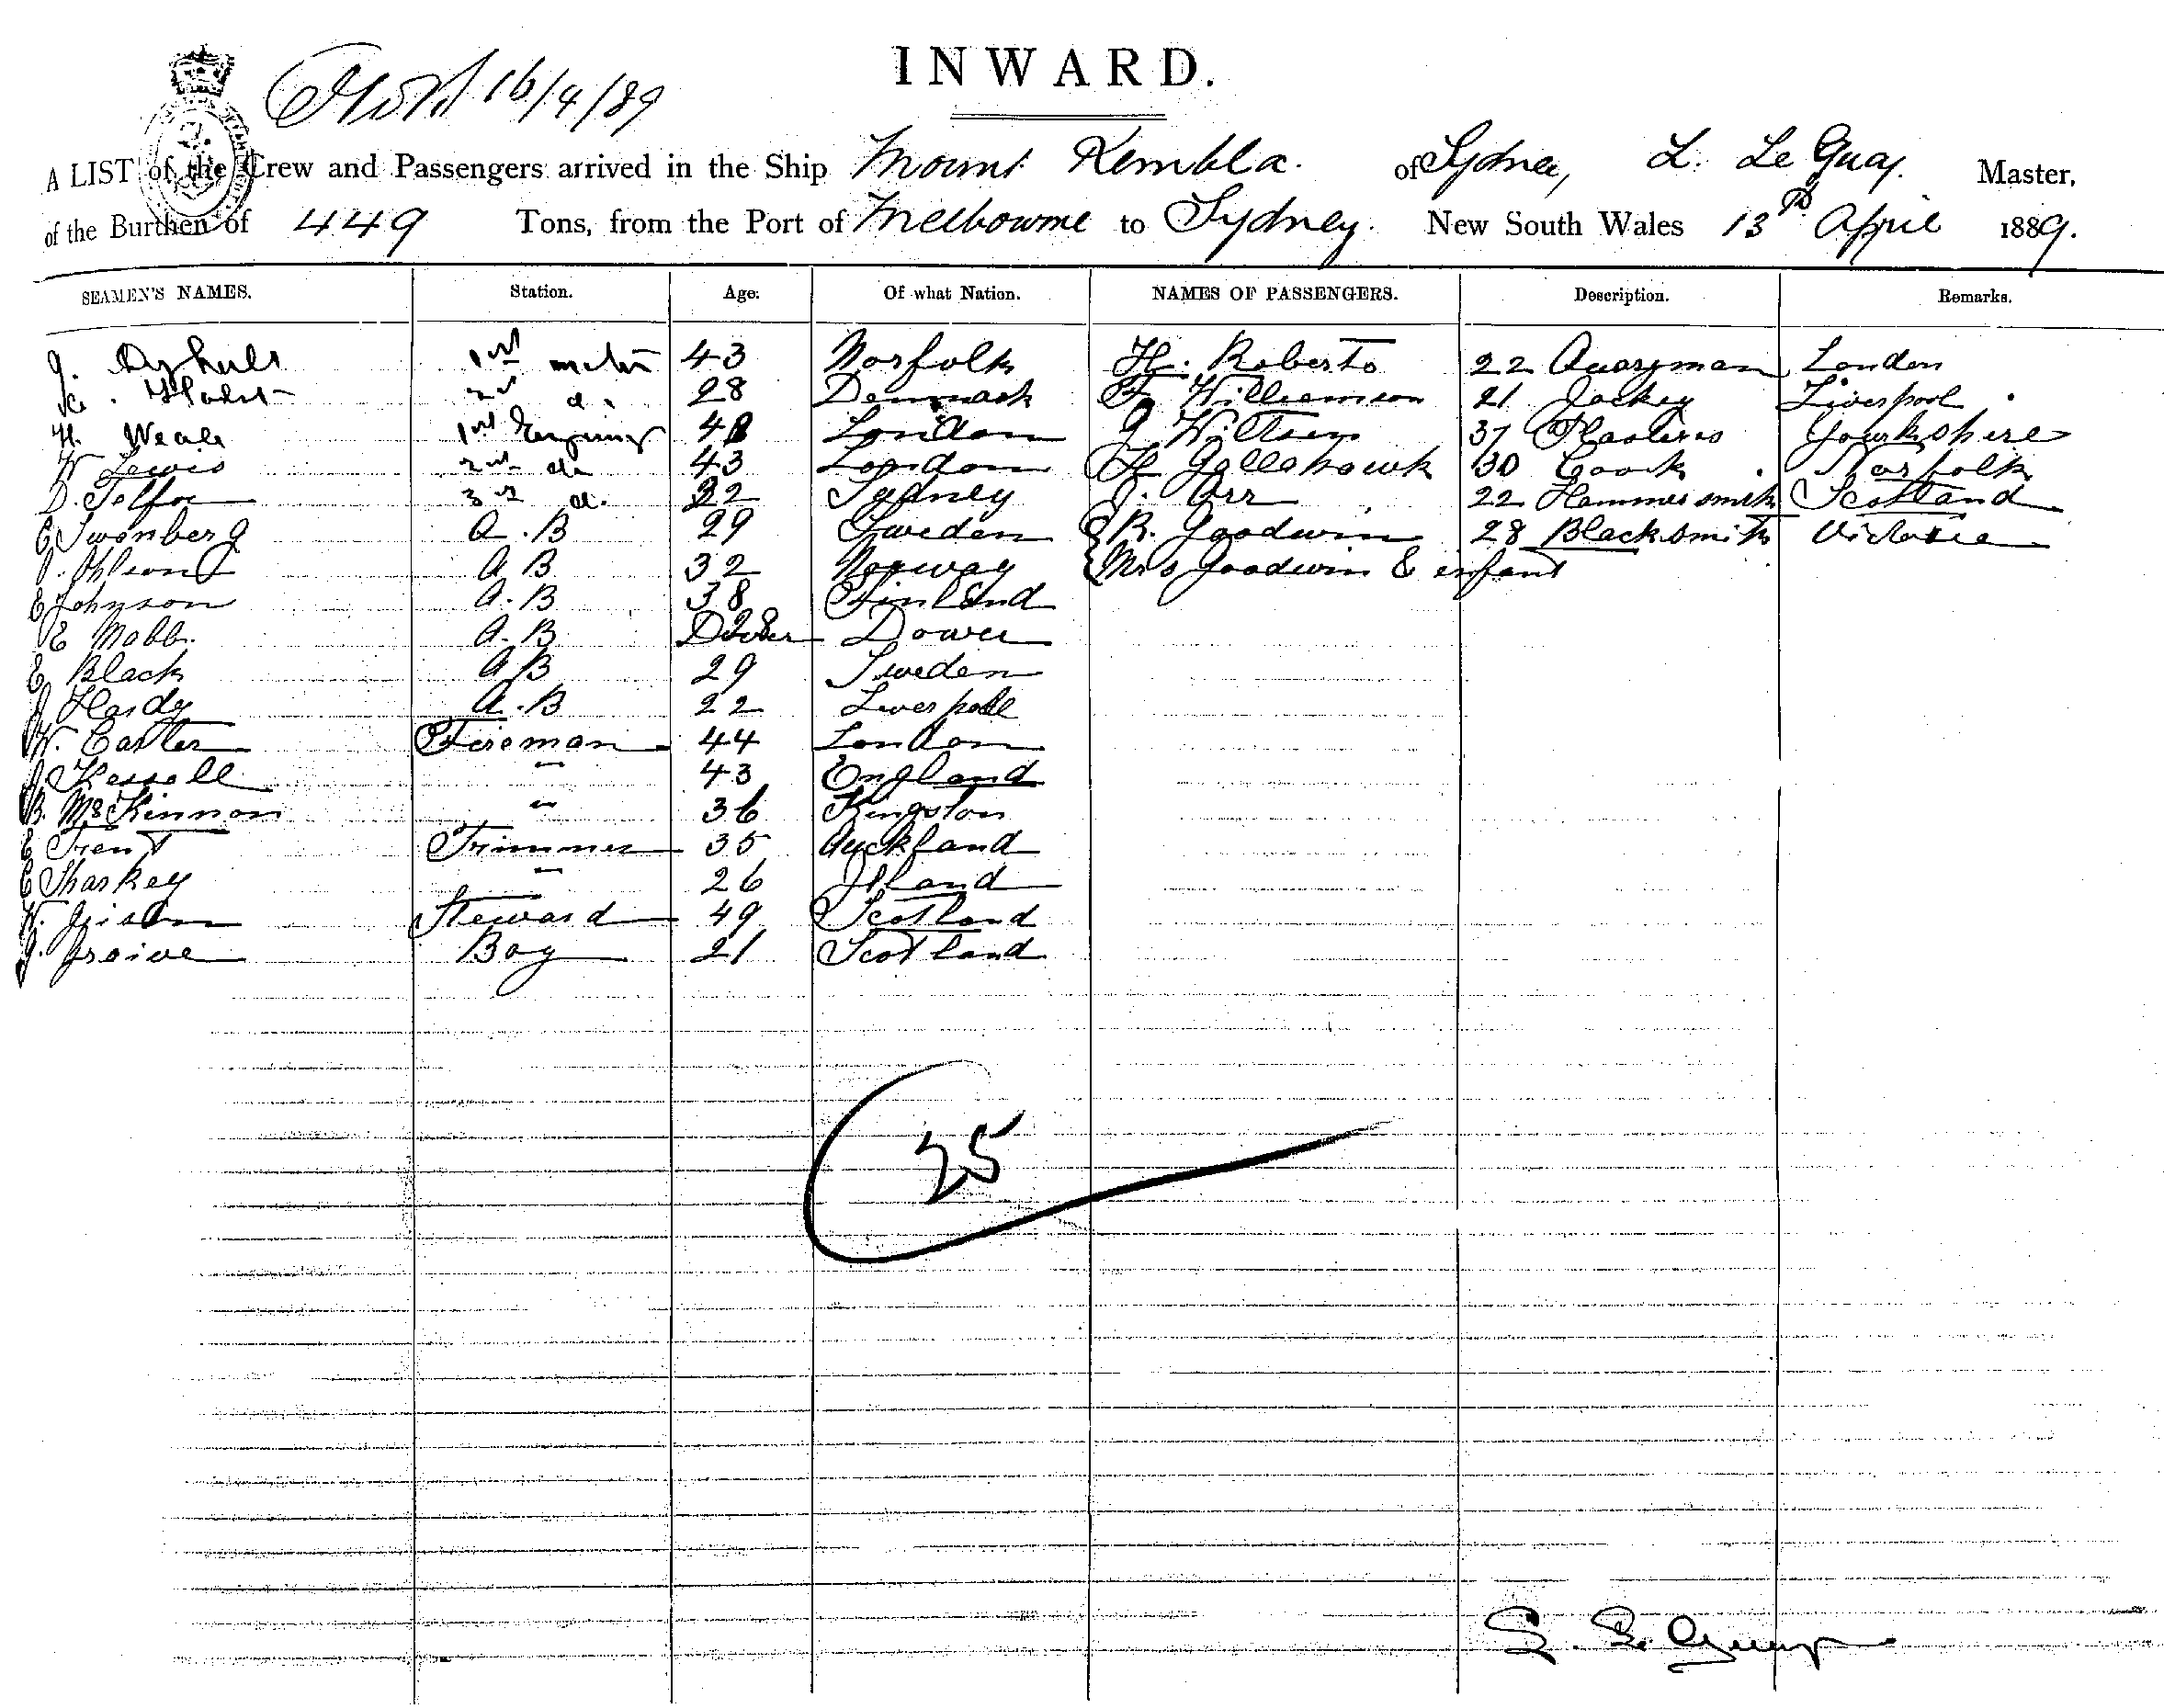 16/4/89
INWARD.
A LIST of the Crew and Passengers arrived in the Ship Mount Kembla. of Sydney, L. Le Guay. Master,
of the Burthen of 449 Tons, from the Port of Melbourne to Sydney. New South Wales 13th April 1889.
SEAMEN'S NAMES. Station. Age. Of what Nation. NAMES OF PASSENGERS. Description. Remarks.
1st 43 Norfolk H. Roberts 22 Quaryman London
2nd 28 Denmark F Williamson 21 Jockey Liverpool
H. Weale 1st London J 37 Yourkshere
W Lewis 2nd do 43 London H Gollohawk 30 Coock Norfolk
D. Telfor 3rd 22 Sydney J. Orr 22 Hammersmith Scotland
C Swonberg A.B 29 Sweden R. Goodwin 28 Blacksmith Victoria
A B 32 Norway Mrs Goodwin & enfant
E Johnson A.B 38 Finland
E Mobb. A.B 28 Dower
E Black A B 29 Sweden
J Hardy A.B 22 Liverpool
W. Carter Fireman 44 London
J. Kessell " 43 England
B. McKinnon " 36 Kingston
E Trent Trimmer 35 Auckland
C Sharkey " 26
W. Steward 49 Scotland
J. Boy 21 Scotland
25
L. Le Guay